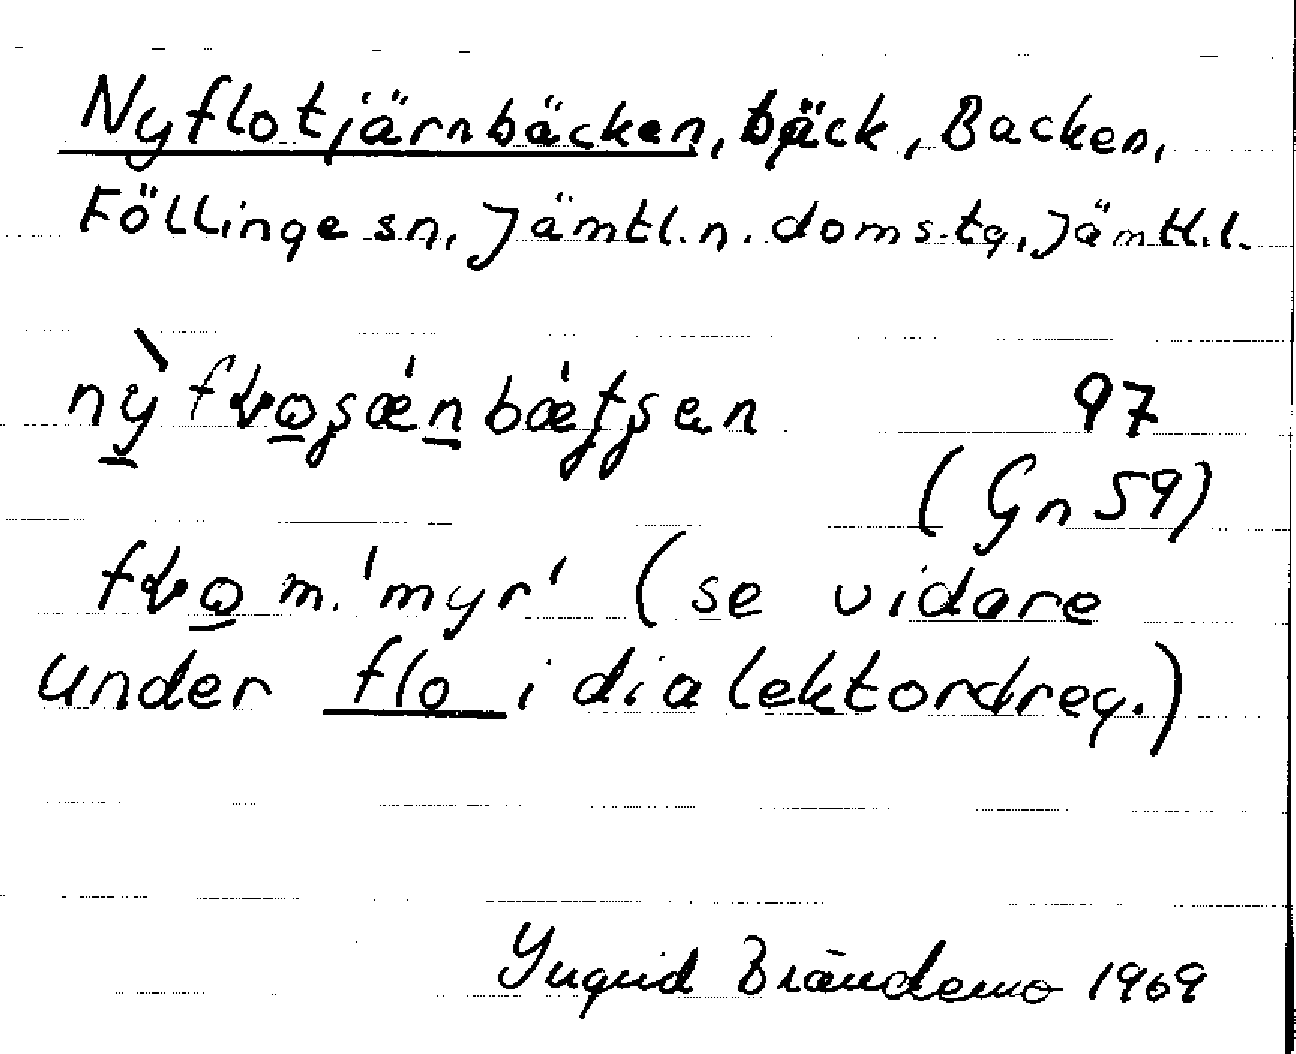 Nyflotjärnbäcken, bäck, Backen,
Föllinge sn, Jämtl. n. doms.tg, Jämtl.l.
97
(Gn 59)
m. 'myr' (se vidare
under flo i dialektordreg.)
Ingrid Brändemo 1969